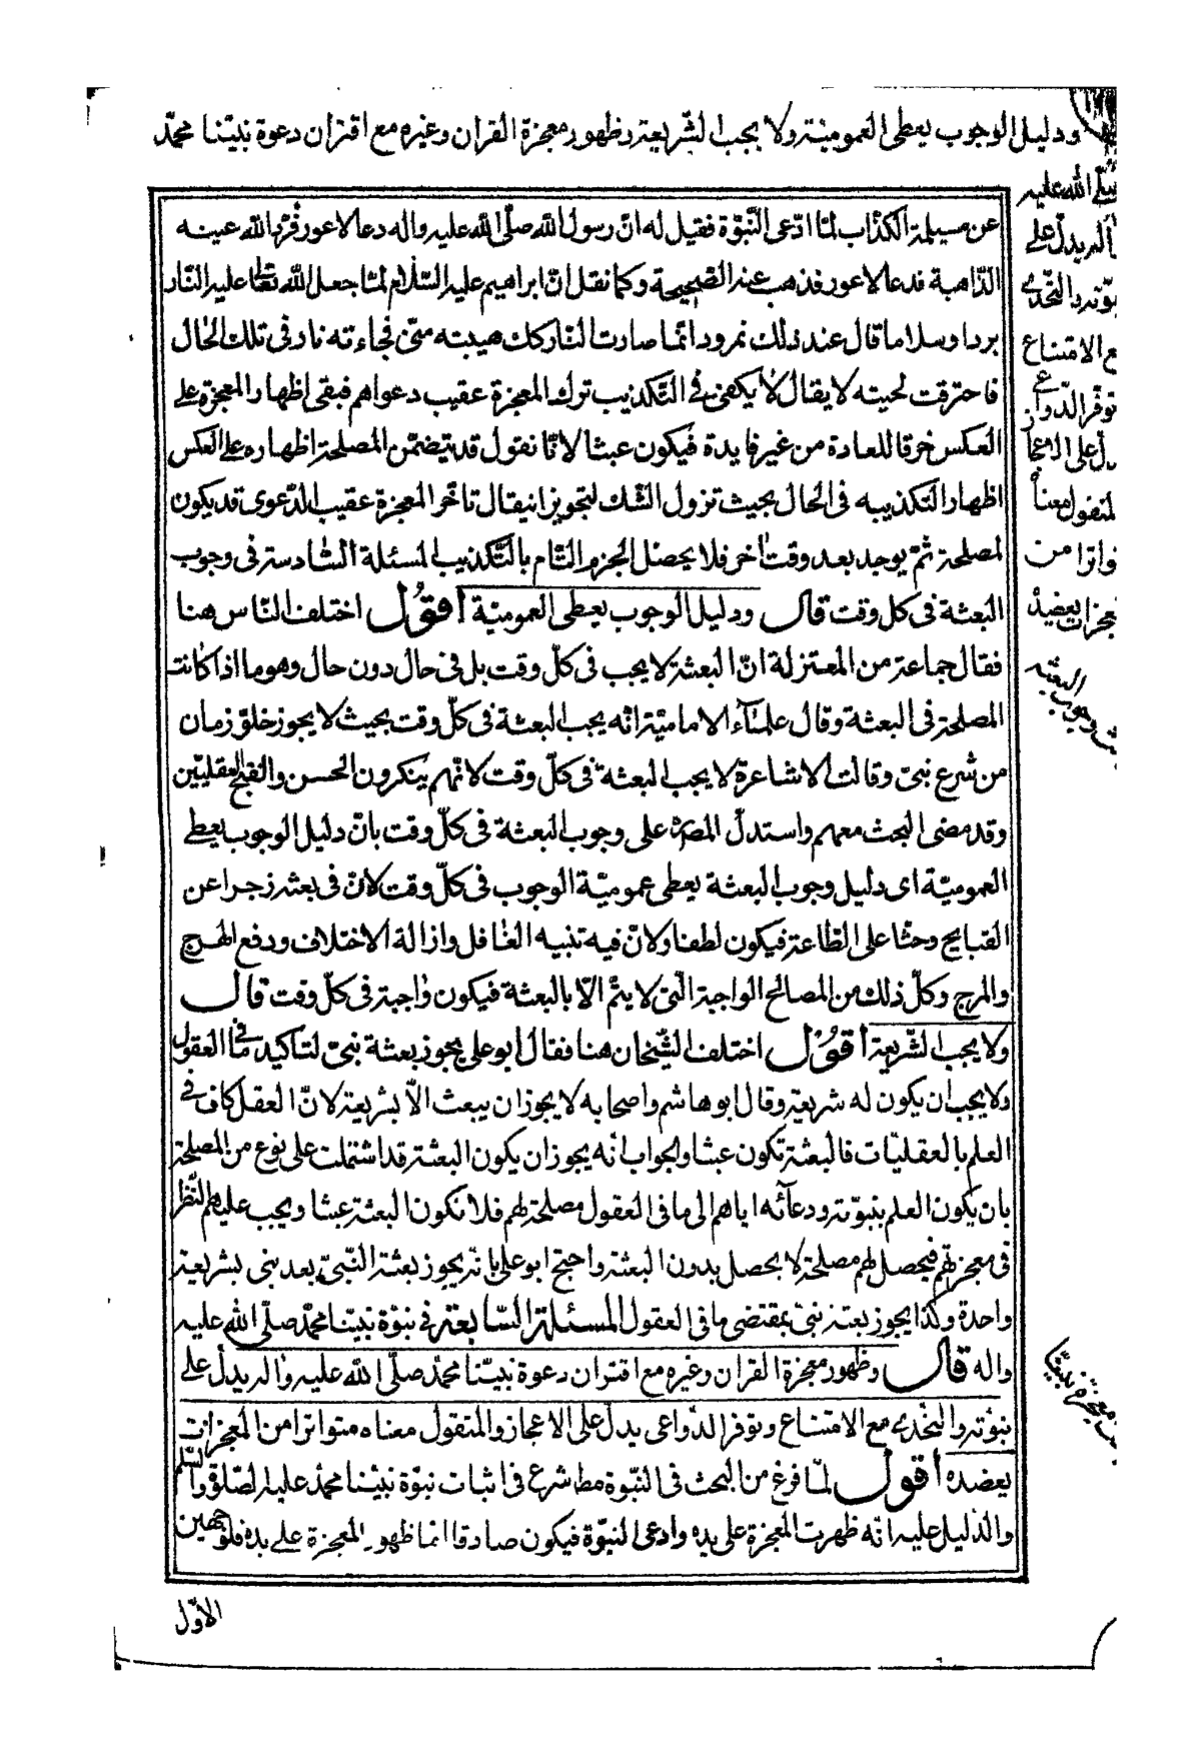 ودليل الوجوب يعطى العمومية ولا يجب الشريعة وظهور معجزة القران وغيره مع اقتران دعوة نبينا محمد
صلى الله عليه
واله يدل على
نبوته والتحدى
مع الامتناع
وتوفر الدواعى
يدل على الاعجا
المنقول معناه
متواترا من
المعجزات يعضده
عن مسيلمة الكذاب لما ادّعى النّبوّة فقيل له انّ رسول الله صلّى الله عليه واله دعا لاعور فردّ الله عينه
الذّاهبة فدعا لاعور فذهب عنه الصّحيحة وكما نقل انّ ابراهيم عليه السّلام لمّا جعل الله تعالى عليه النّار
بردا وسلاما قال عند ذلك نمرود انّما صارت النار كك هيبته منّى فجاءته نار فى تلك الحال
فاحترقت لحيته لا يقال لا يكفى فى التّكذيب ترك المعجزة عقيب دعواهم فبقى اظهار المعجزة على
العكس خرقا للعادة من غير فايدة فيكون عبثا لانّا نقول قد يتضمّن المصلحة اظهاره على العكس
اظهار التكذيبه فى الحال بحيث تزول الشّك لتجويز ان يقال تاخّر المعجزة عقيب الدّعوى قد يكون
لمصلحة ثمّ يوجد بعد وقت اخر فلا يحصل الجزم التّام بالتّكذيب المسئلة السّادسة فى وجوب
البعثة فى كل وقت قال ودليل الوجوب يعطى العموميّة أقول اختلف النّاس هنا
فقال جماعة من المعتزلة انّ البعثة لا يجب فى كلّ وقت بل فى حال دون حال وهو ما اذا كانت
المصلحة فى البعثة وقال علمآء الاماميّة انّه يجب البعثة فى كلّ وقت بحيث لا يجوز خلوّ زمان
من شرع نبىّ وقالت الاشاعرة لا يجب البعثة فى كلّ وقت لانّهم ينكرون الحسن والقبح العقليّين
وقد مضى البحث معهم واستدلّ المصره على وجوب البعثة فى كلّ وقت بانّ دليل الوجوب يعطى
العموميّة اى دليل وجوب البعثة يعطى عموميّة الوجوب فى كلّ وقت لانّ فى بعثه زجرا عن
القبايح وحثا على الطّاعة فيكون لطفا ولانّ فيه تنبيه الغافل وازالة الاختلاف ودفع الهرج
والمرج وكلّ ذلك من المصالح الواجبة الّتى لا يتمّ الّا بالبعثة فيكون واجبة فى كلّ وقت قال
ولا يجب الشّريعة أقول اختلف الشّيخان هنا فقال ابو على يجوز بعثة نبىّ لتاكيد ما فى العقول
ولا يجب ان يكون له شريعة وقال ابو هاشم واصحابه لا يجوز ان يبعث الّا بشريعة لانّ العقل كاف فى
العلم بالعقليّات فالبعثة تكون عبثا والجواب انّه يجوز ان يكون البعثة قد اشتملت على نوع من المصلحة
بان يكون العلم بنبوّته ودعآئه اياهم الى ما فى العقول مصلحة لهم فلا تكون البعثة عبثا ويجب عليهم النّظر
فى معجزتهم فيحصل لهم مصلحة لا يحصل بدون البعثة واحتج ابو على بانّه يجوز بعثة النّبىّ بعد نبى بشريعة
واحدة وكذا يجوز بعثة نبىّ بمقتضى ما فى العقول المسئلة السّابعة فى نبوّة نبيّنا محمّد صلّى الله عليه
واله قال وظهور معجزة القران وغيره مع اقتران دعوة نبيّنا محمّد صلّى الله عليه واله يدلّ على
نبوّته والتحدى مع الامتناع وتوفر الدّواعى يدلّ على الاعجاز والمنقول معناه متواترا من المعجزات
يعضده أقول لمّا فرغ من البحث فى النّبوة مطا شرع فى اثبات نبوّة نبيّنا محمّد عليه الصّلوة والسّلم
والدّليل عليه انّه ظهرت المعجزة على يده وادعى النبوّة فيكون صادقا امّا ظهور المعجزة على يده فلوجهين
وجوب البعثه
معجزة نبيّنا
الاوّل